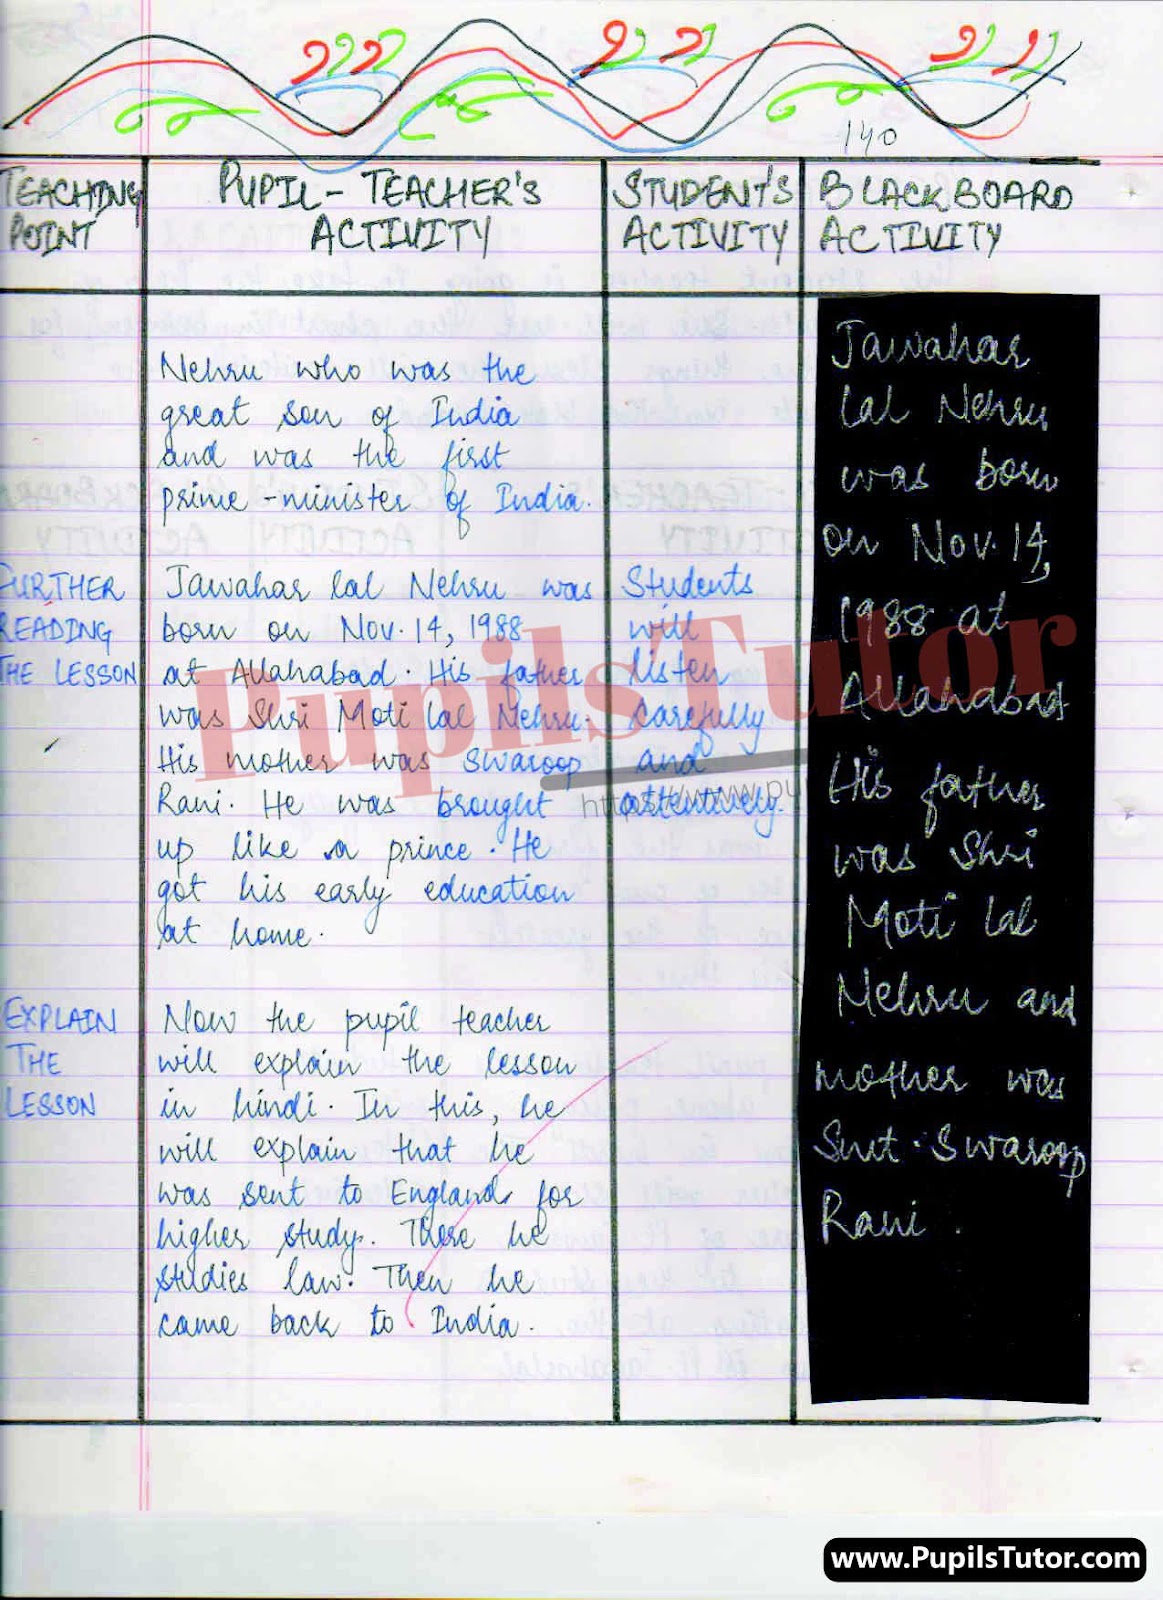 140
TEACHING
POINT
PUPIL - TEACHER'S
ACTIVITY
STUDENT'S
ACTIVITY
BLACKBOARD
ACTIVITY
Nehru who was the
great son of India
and was the first
prime-minister of India.
FURTHER
READING
THE LESSON
Jawahar lal Nehru was
born on Nov. 14, 1988
at Allahabad. His father
was Shri Moti lal Nehru.
His mother was Swaroop
Rani. He was brought
up like a prince. He
got his early education
at home.
Students
will
listen
carefully
and
attentively.
EXPLAIN
THE
LESSON
Now the pupil teacher
will explain the lesson
in hindi. In this, he
will explain that he
was sent to England for
higher study. There he
studies law. Then he
came back to India.
Jawahar
lal Nehru
was born
on Nov. 14,
1988 at
Allahabad
His father
was Shri
Moti lal
Nehru and
mother was
Smt. Swaroop
Rani.
PupilsTutor
www.PupilsTutor.com